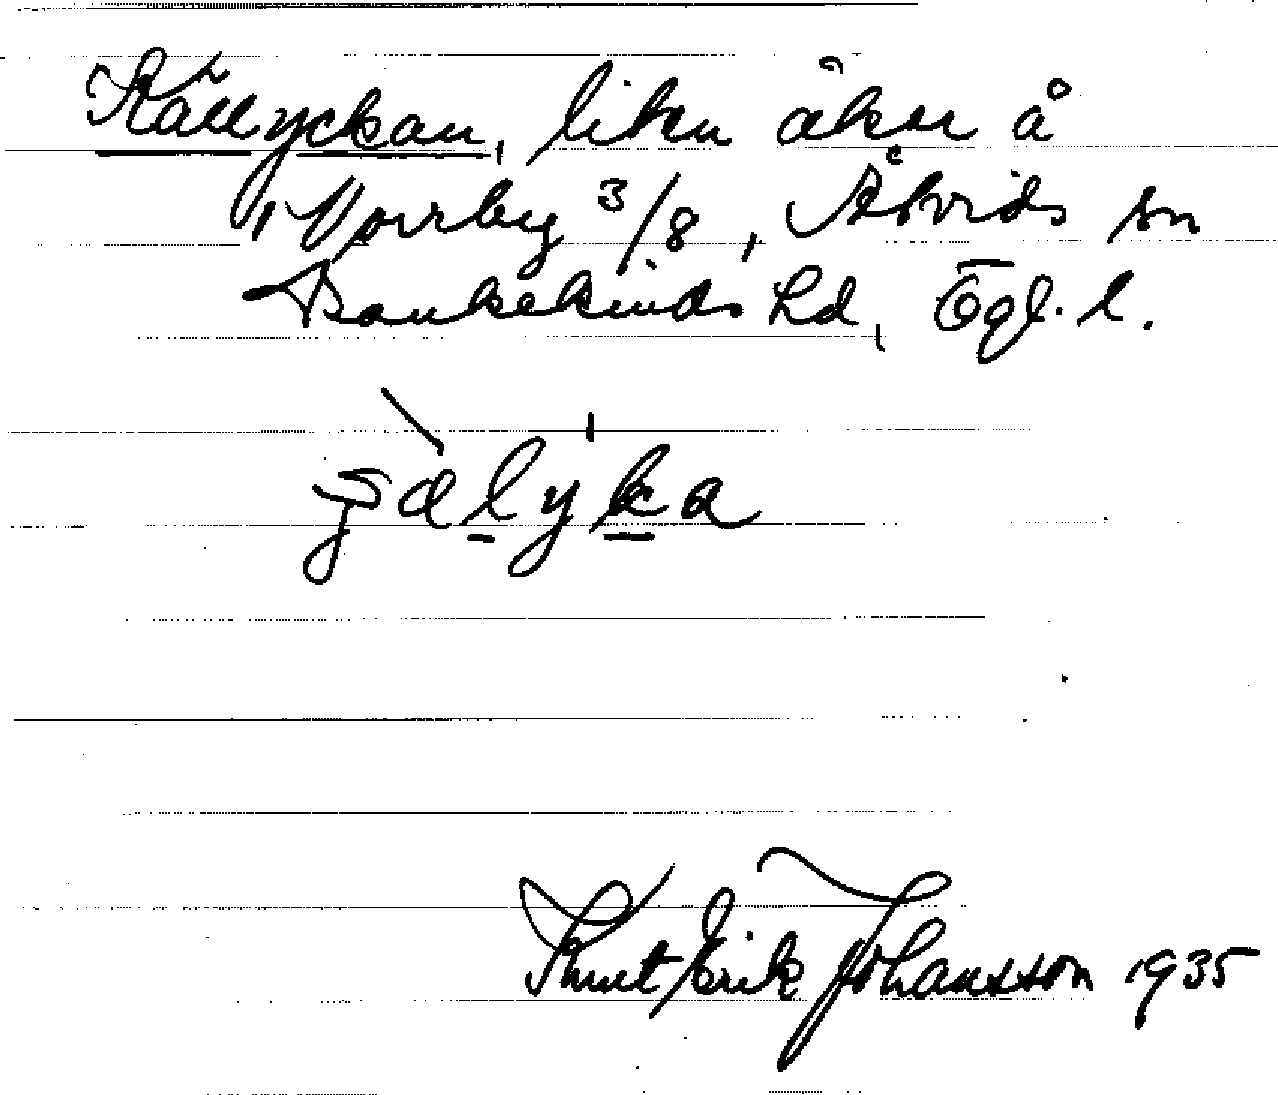 Källyckan, liten åker å
Norrby 3/8, Åtvids sn
Bankekinds hd, Ögl. l.
ʃälyka
Knut Erik Johansson 1935